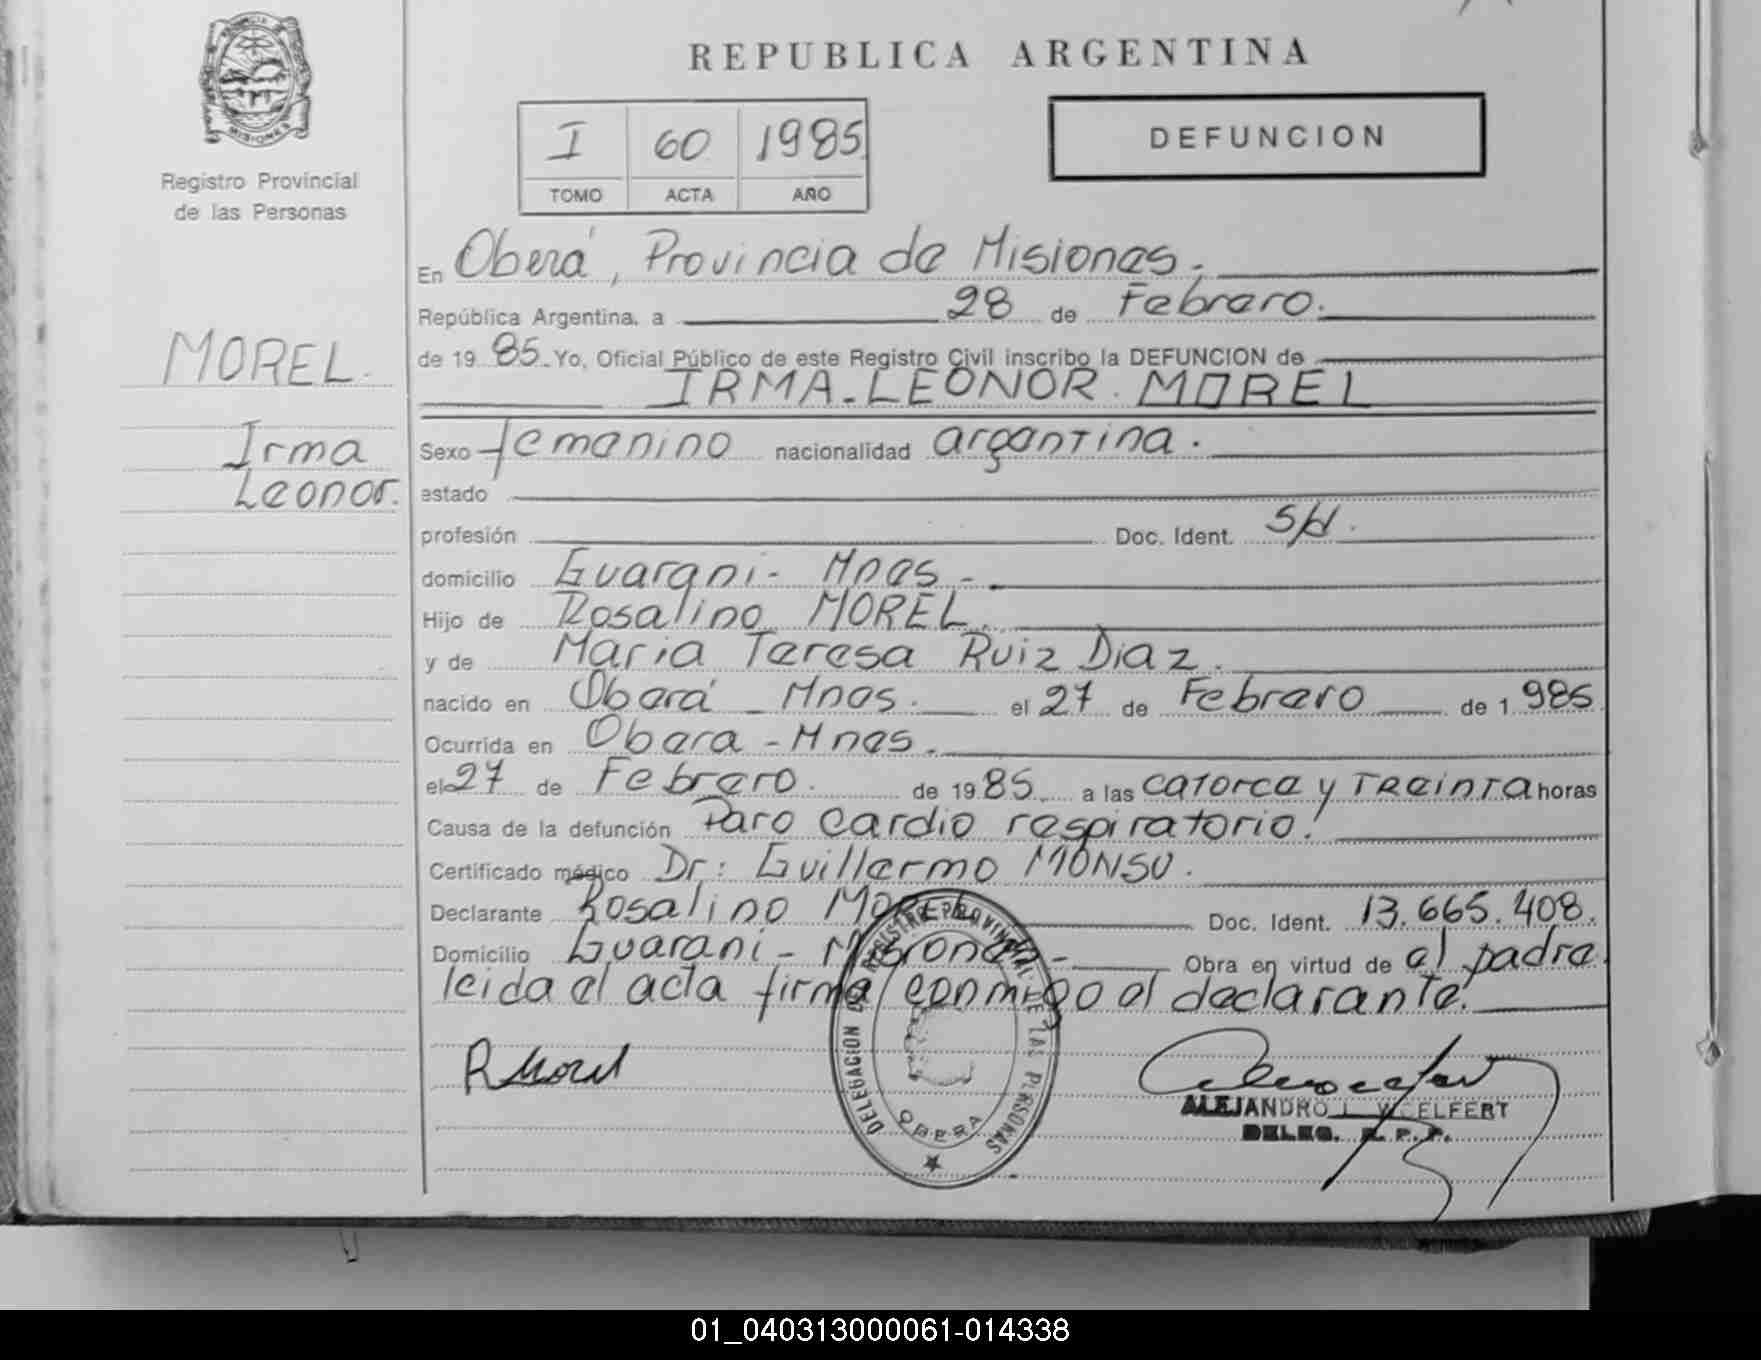 PROVINCIA DE
MISIONES
Registro Provincial
de las Personas
MOREL.
Irma
Leonor.
REPUBLICA ARGENTINA
I 60 1985
TOMO ACTA AÑO
DEFUNCION
En Oberá, Provincia de Misiones.
República Argentina, a 28 de Febrero.
de 19 85 Yo, Oficial Público de este Registro Civil inscribo la DEFUNCION de
IRMA-LEONOR. MOREL
Sexo femenino nacionalidad argentina.
estado
profesión Doc. Ident. S/d.
domicilio Guarani- Mnes -
Hijo de Rosalino MOREL.
y de Maria Teresa Ruiz Diaz.
nacido en Oberá - Mnes. el 27 de Febrero de 1 985
Ocurrida en Obera - Mnes.
el 27 de Febrero. de 19 85 a las catorce y treinta horas
Causa de la defunción Paro cardio respiratorio.
Certificado médico Dr: Guillermo MONSU.
Declarante Rosalino Morel Doc. Ident. 13.665.408.
Domicilio Guarani - Misiones - Obra en virtud de el padre.
leida el acta firma conmigo el declarante.
R Morel
DELEGACION DEL REGISTRO PROVINCIAL DE LAS PERSONAS
OBERA
ALEJANDRO L. WOELFERT
DELEG. R. P. P.
01_040313000061-014338